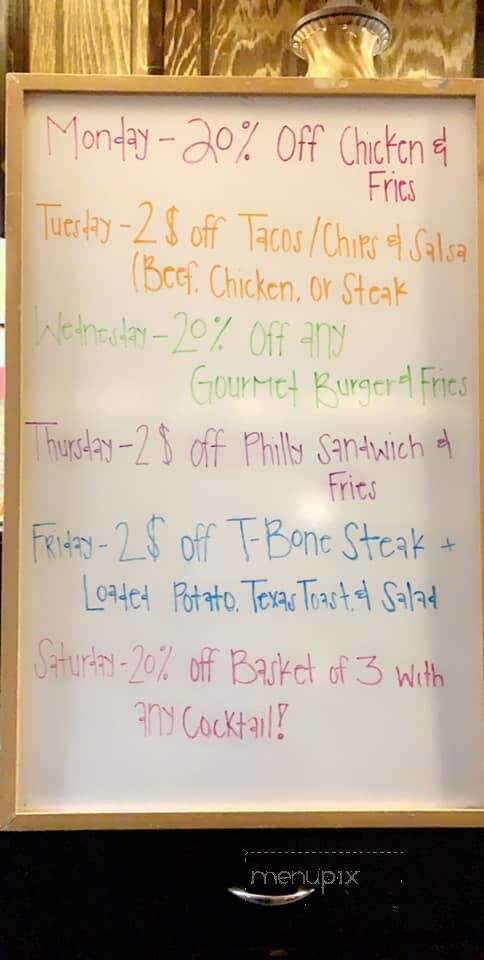 Monday - 20% Off Chicken &
Fries
Tuesday - 2$ off Tacos/Chips & Salsa
(Beef, Chicken, Or Steak
Wednesday - 20% Off any
Gourmet Burger & Fries
Thursday - 2$ off Philly Sandwich &
Fries
Friday - 2$ off T-Bone Steak +
Loaded Potato, Texas Toast, & Salad
Saturday - 20% off Basket of 3 with
any Cocktail!
menupix